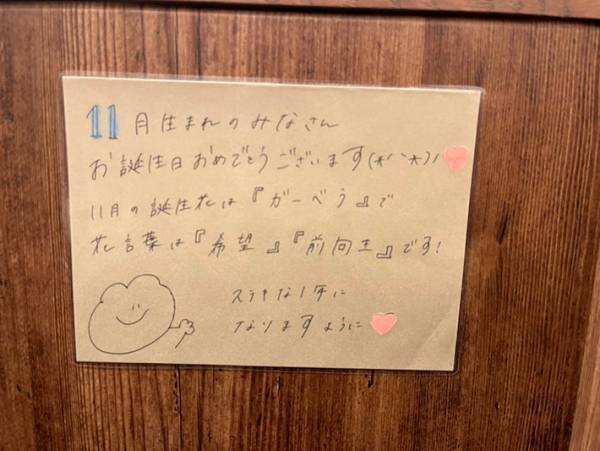 11月生まれのみなさん
お誕生日おめでとうございます(*^^*)!
11月の誕生花は『ガーベラ』で
花言葉は『希望』『前向き』です!
ステキな1年に
なりますように